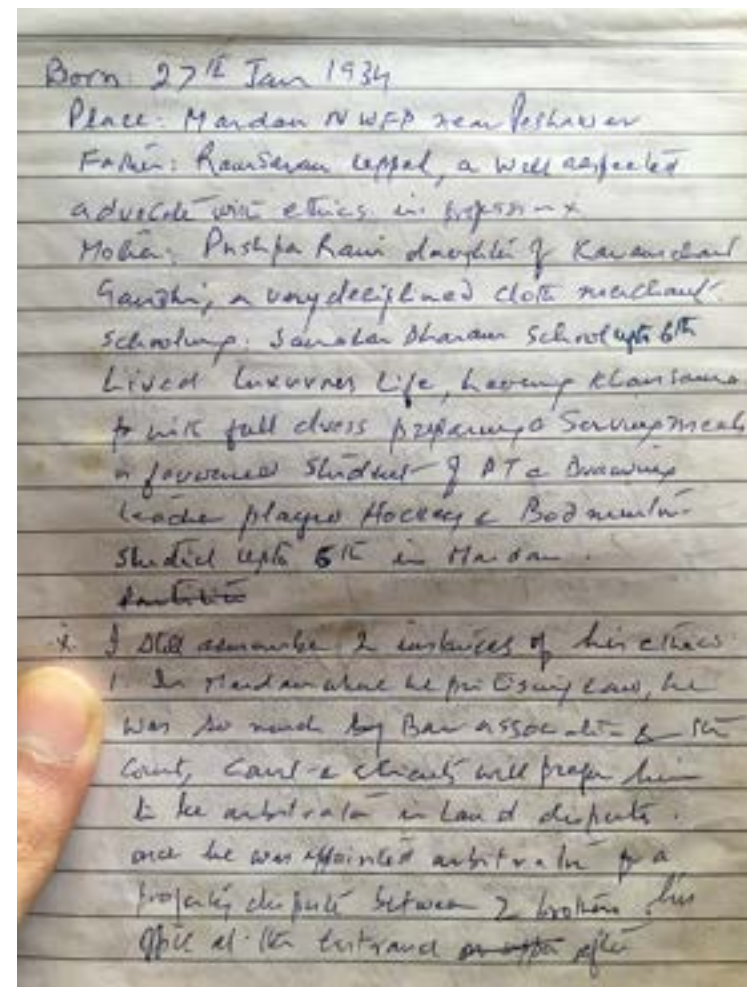 Born: 27th Jan 1934
Place: Mardan NWFP near Peshawar
Father: Ram Saran Uppal, a well respected
advocate with ethics in profession x
Mother: Pushpa Rani daughter of Karamchand
Gandhi, a very deciplined cloth merchant.
Schooling: Sanatan Dharam School upto 6th
Lived luxurous life, having Khansama
with full dress preparing & serving meals
a favoured student of PT & Drawing
teacher played Hockey & Badminton
Studied upto 6th in Mardan.
x. I still remember 2 instances of his ethics
1. In Mardan where he practising law, he
was so much by Bar association & the
Court, Court & clients will prefer him
to be arbitrator in land disputes.
once he was appointed arbitrator for a
property dispute between 2 brothers. his
office at the entrance after